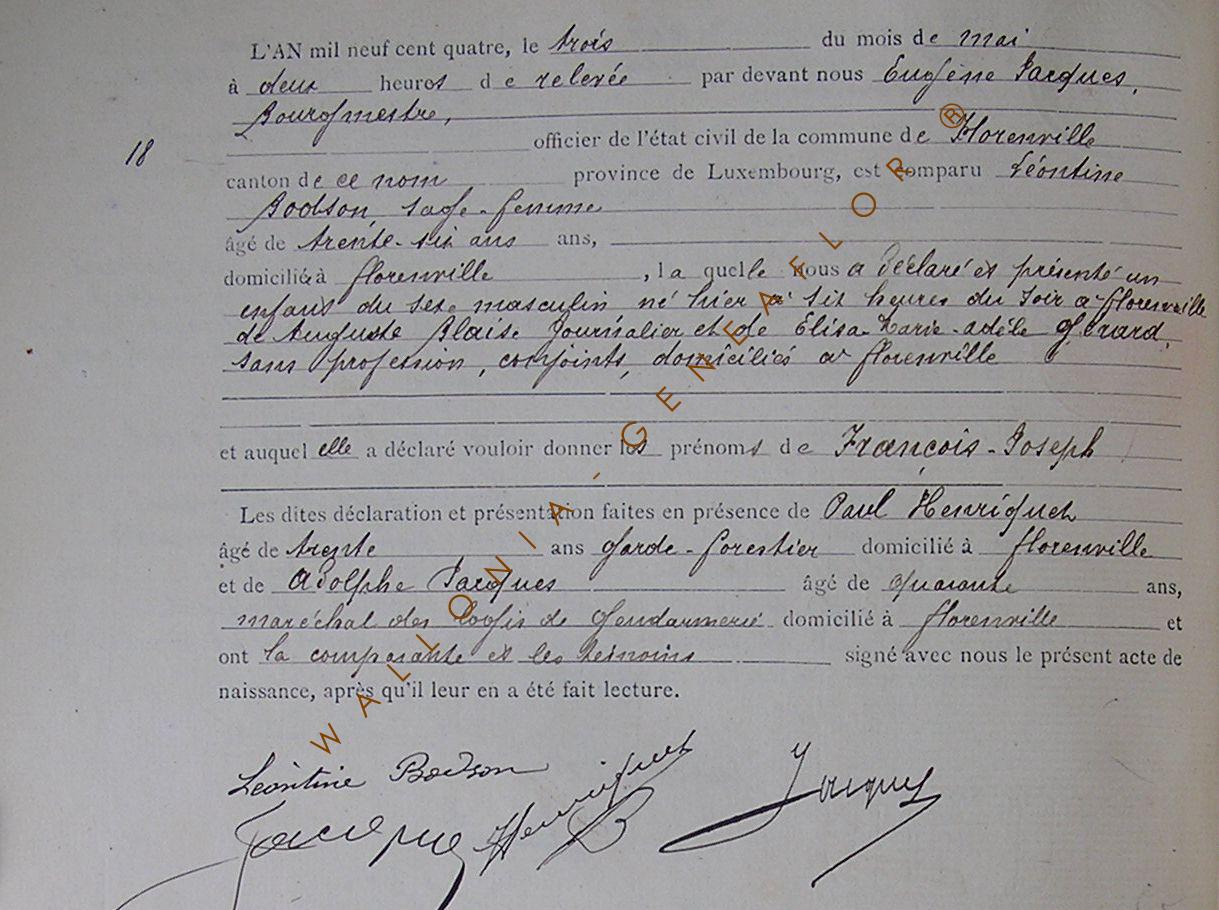 L'AN mil neuf cent quatre, le trois du mois de mai
à deux heures de relevée par devant nous Eugène Jacques,
Bourgmestre,
officier de l'état civil de la commune de Florenville
18
canton de ce nom province de Luxembourg, est comparu Léontine
Bodson, sage-femme
âgé de trente-six ans ans,
domiciliéà florenville, laquelle nous a déclaré et présenté un
enfant du sexe masculin né hier à six heures du soir à florenville
de Auguste Blaise Journalier et de Élisa-Marie-adèle Gérard,
sans profession, conjoints, domiciliés à florenville
et auquel elle a déclaré vouloir donner les prénoms de François-Joseph
Les dites déclaration et présentation faites en présence de Paul Henriquet
âgé de trente ans garde-forestier domicilié à florenville
et de Adolphe Jacques âgé de quarante ans,
maréchal des logis de gendarmerie domicilié à florenville et
ont la comparante et les témoins signé avec nous le présent acte de
naissance, après qu'il leur en a été fait lecture.
Léontine Bodson
Jacques Henriquet Jacques
WALLONIA-GENEAFLOR ®